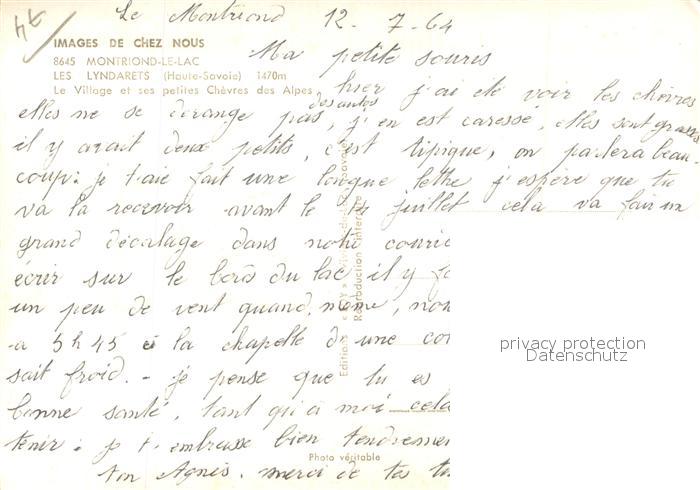 74
Le Montriond 12-7-64
IMAGES DE CHEZ NOUS
8645 MONTRIOND-LE-LAC
LES LYNDARETS (Haute-Savoie) 1470m
Le Village et ses petites Chèvres des Alpes
Ma petite souris
hier j'ai été voir les chèvres
elles ne se dérange pas des autos, j'en est caressé, elles sont grasses
il y avait deux petits, c'est tipique, on parlera beau-
coup. je t'aie fait une longue lettre j'espère que tu
va la recevoir avant le 14 juillet cela va fair un
grand décalage dans notre courri
écrir sur le bord du lac il y fa
un peu de vent quand même, nou
a 5h45 à la chapelle d'une co
sait froid. - je pense que tu es
bonne santé, tant qu'à moi cela
tenir. je t'embrasse bien tendremen
ton Agnès. merci de ta
Reproduction interdite
Photo véritable
privacy protection
Datenschutz